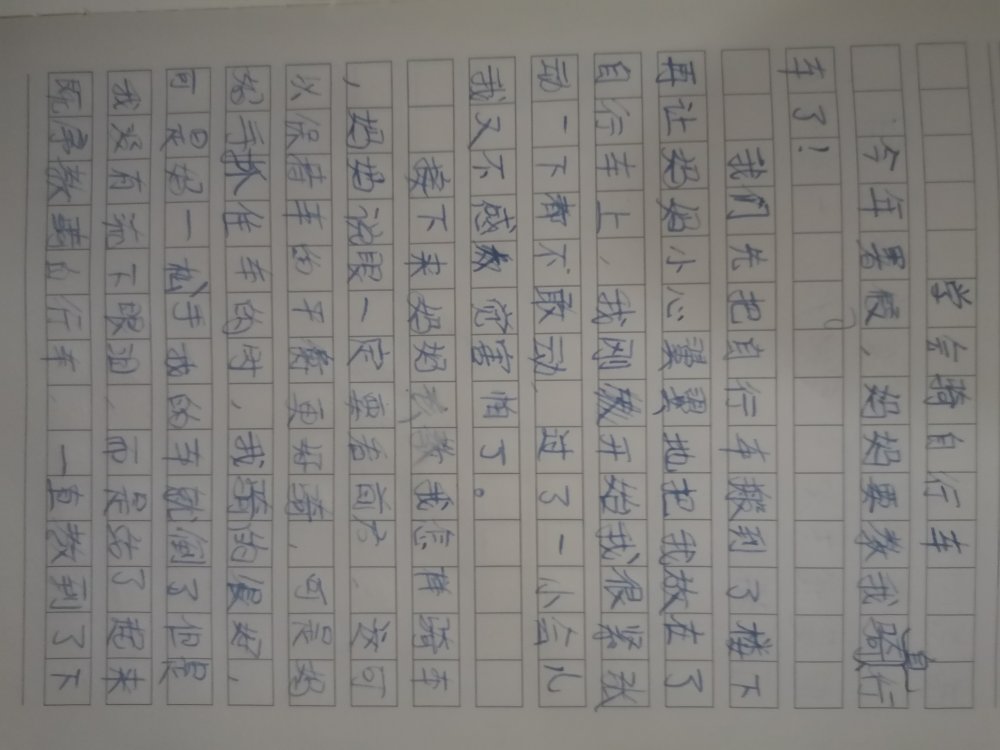 学会骑自行车
今年暑假，妈妈要教我骑自行
车了！
我们先把自行车搬到了楼下
再让妈妈小心翼翼地把我放在了
自行车上，我刚刚开始我很紧张
动一下都不敢动，过了一小会儿
我又不感觉害怕了。
接下来妈妈教我怎样骑车
，妈妈说眼一定要看前方，这可
以保持车的平衡更好骑，可是妈
妈手抓住车的时，我骑的很好，
可是妈一松手我的车就倒了但是
我没有流下眼泪，而是站了起来
既序教骑自行车，一直教到了下